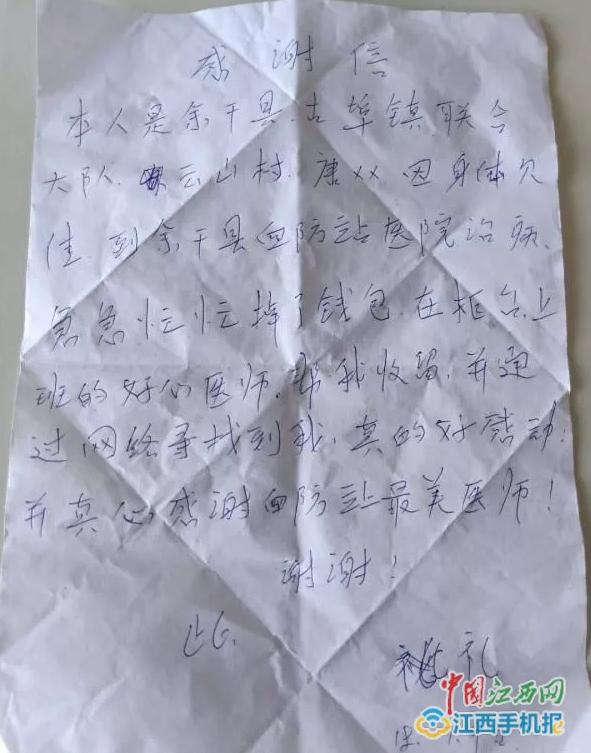 感谢信
本人是余干县.古埠镇.联合
大队.云山村.唐XX.因身体欠
佳.到余干县血防站医院治病.
急急忙忙掉了钱包.在柜台上
班的好心医师.帮我收留.并通
过网络寻找到我.真的好感动!
并真心感谢血防站最美医师!
谢谢!
此
礼
中国江西网
江西手机报